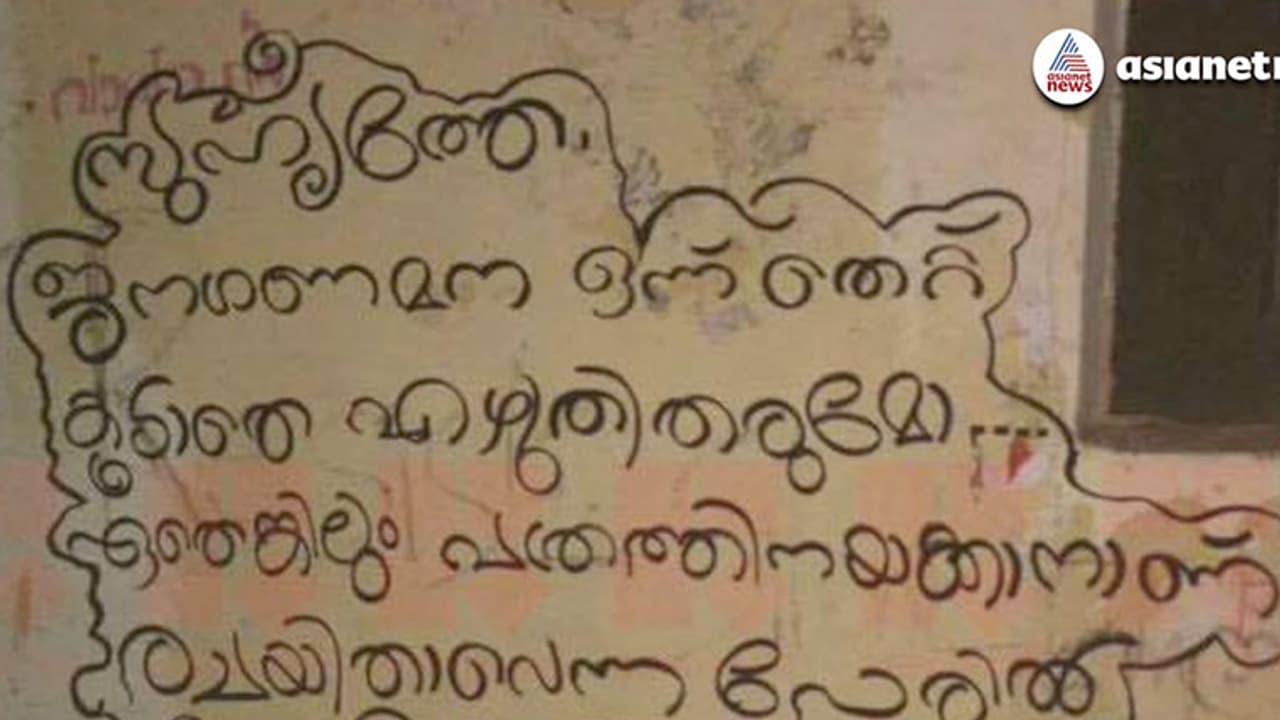 asianet news
asianetn
സുഹൃത്തേ,
ജനഗണമന ഒന്ന് തെറ്റ്
കൂടാതെ എഴുതിതരുമോ
ഏതെങ്കിലും പത്രത്തിനയക്കാനാണ്
രചയിതാവെന്ന പേരിൽ